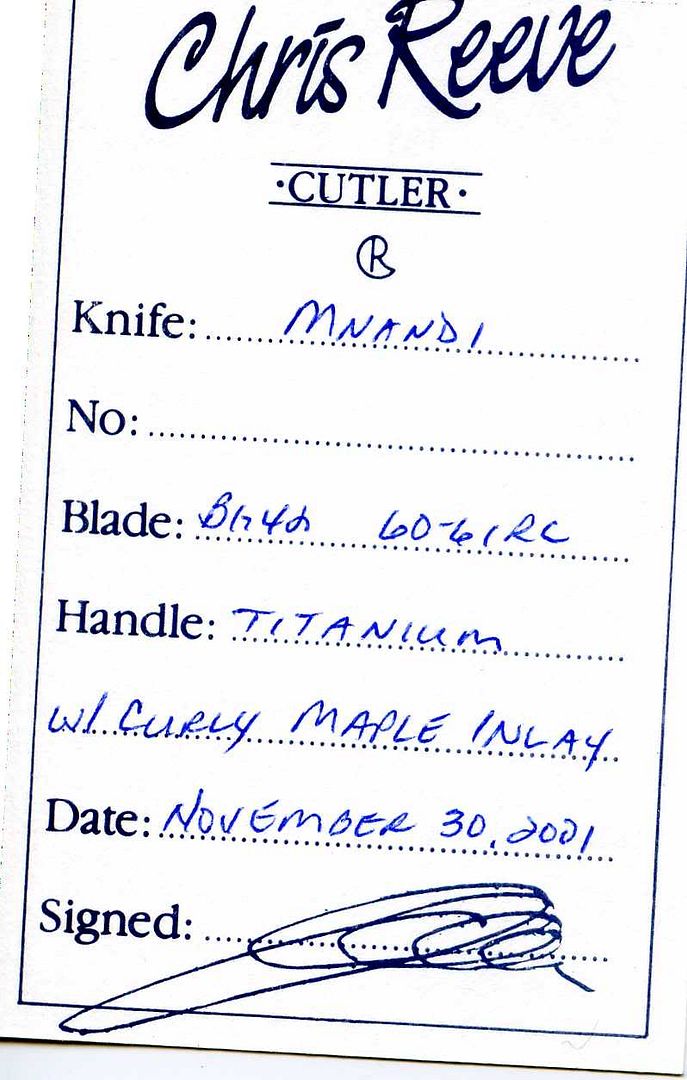 Chris Reeve
·CUTLER·
R
Knife: MNANDI
No:
Blade: BG42 60-61RC
Handle: TITANIUM
w/ CURLY MAPLE INLAY
Date: NOVEMBER 30, 2001
Signed: